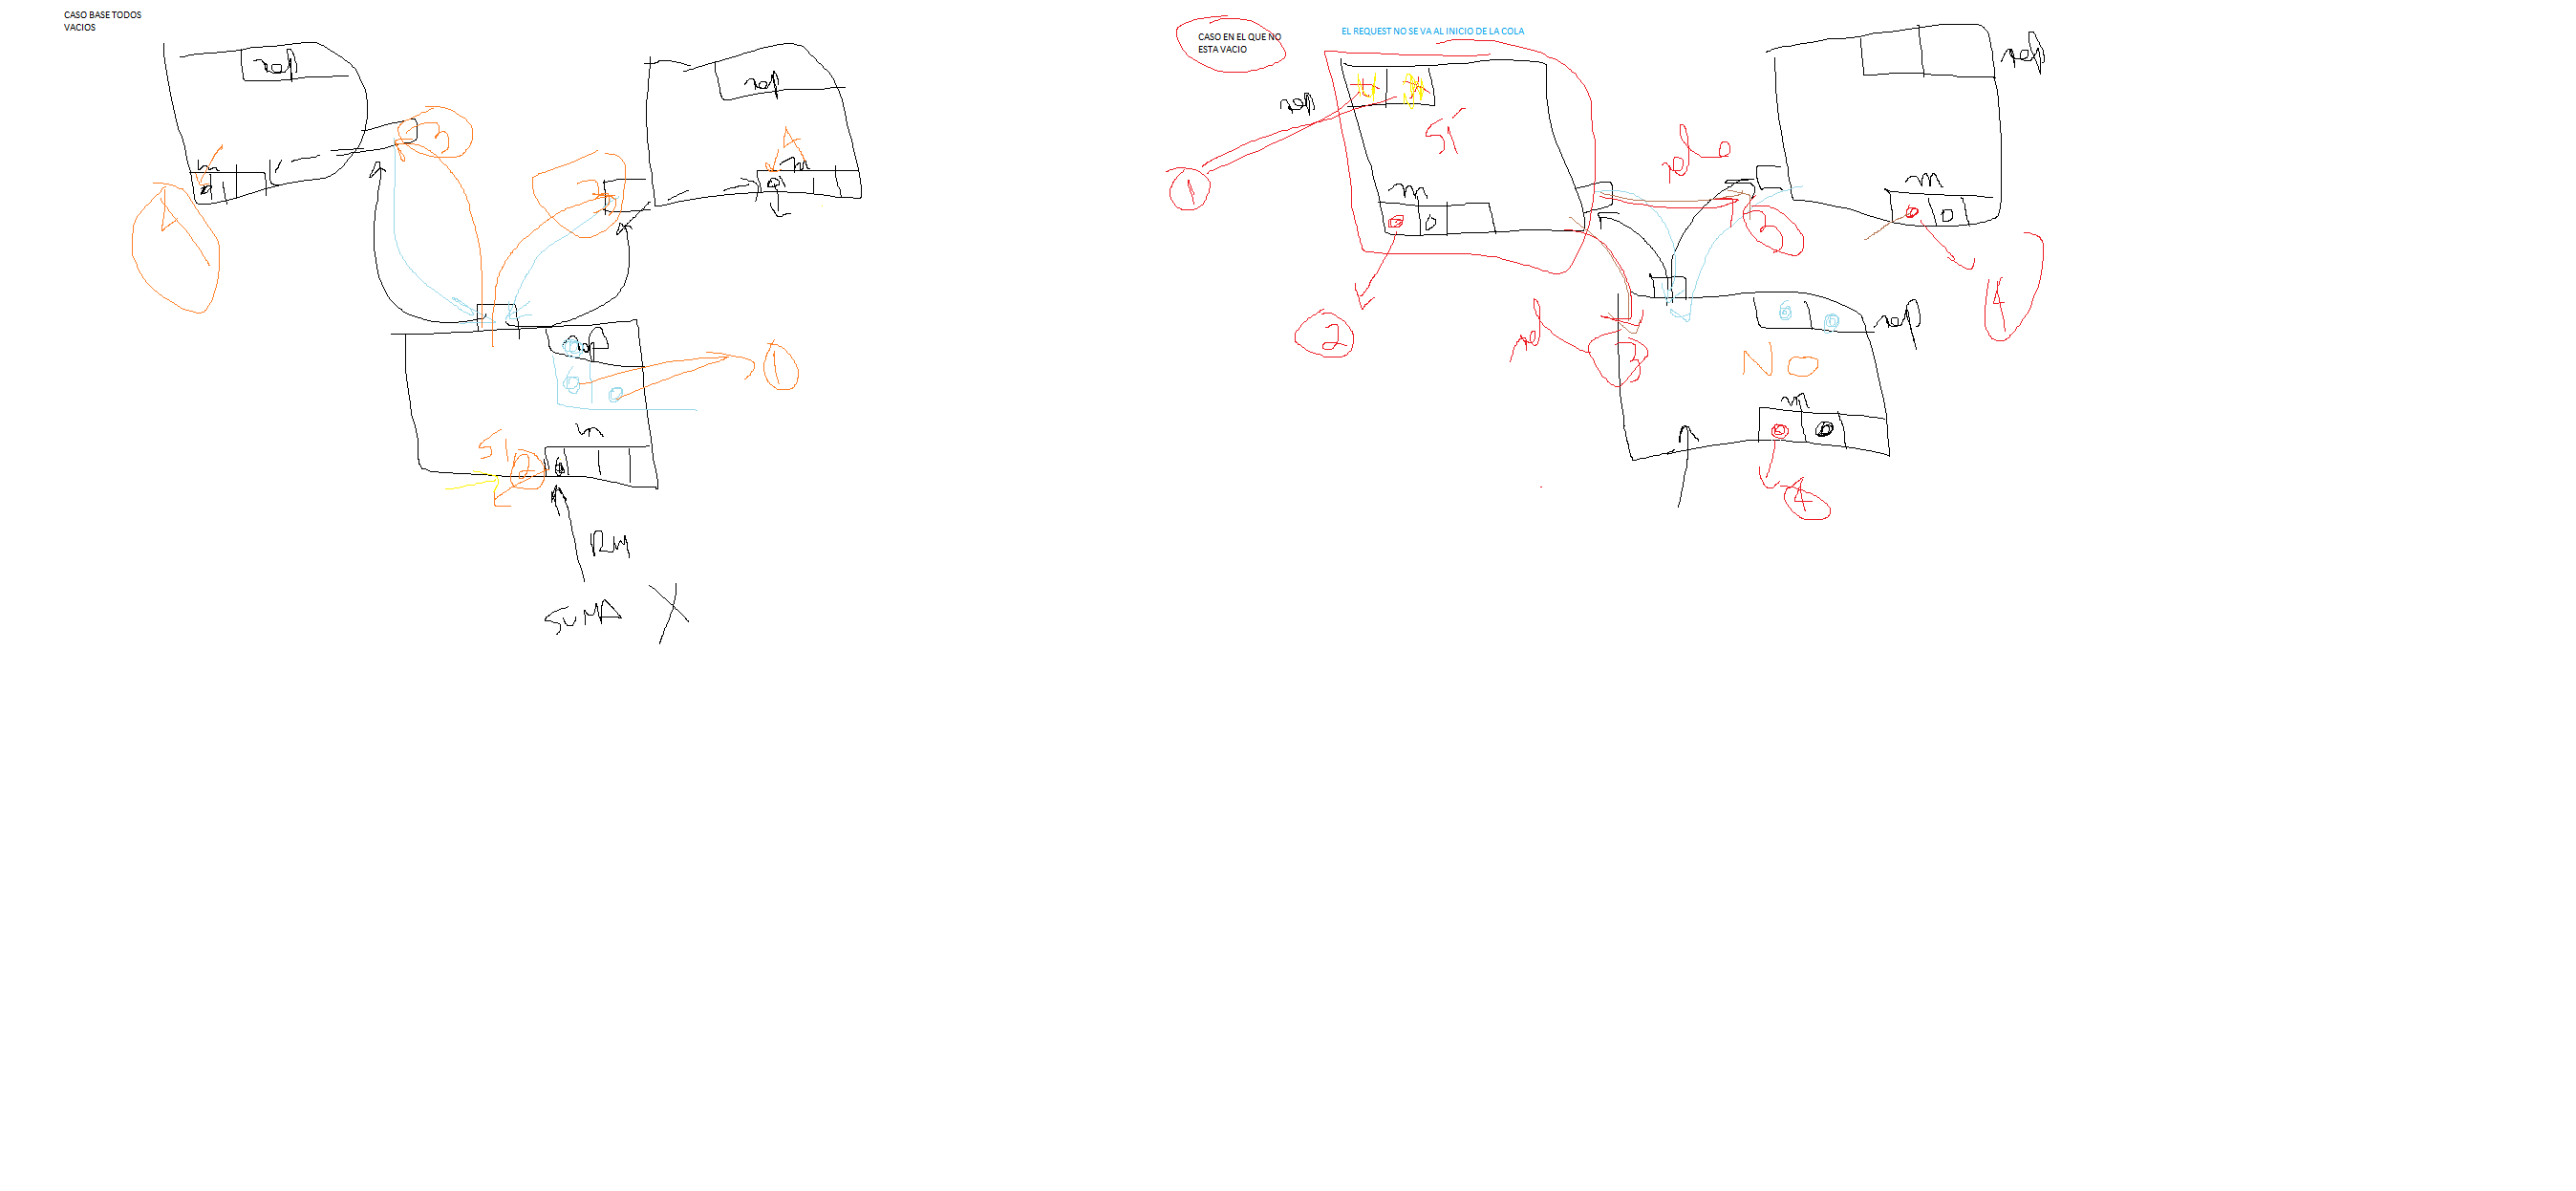 CASO BASE TODOS
VACIOS
rep
rep
3
2
m
m
4
rep
1
m
SI
2
RM
SUMA X
CASO EN EL QUE NO
ESTA VACIO
EL REQUEST NO SE VA AL INICIO DE LA COLA
rep
rep
SI
1
m
m
3
2
4
3
rep
NO
m
4